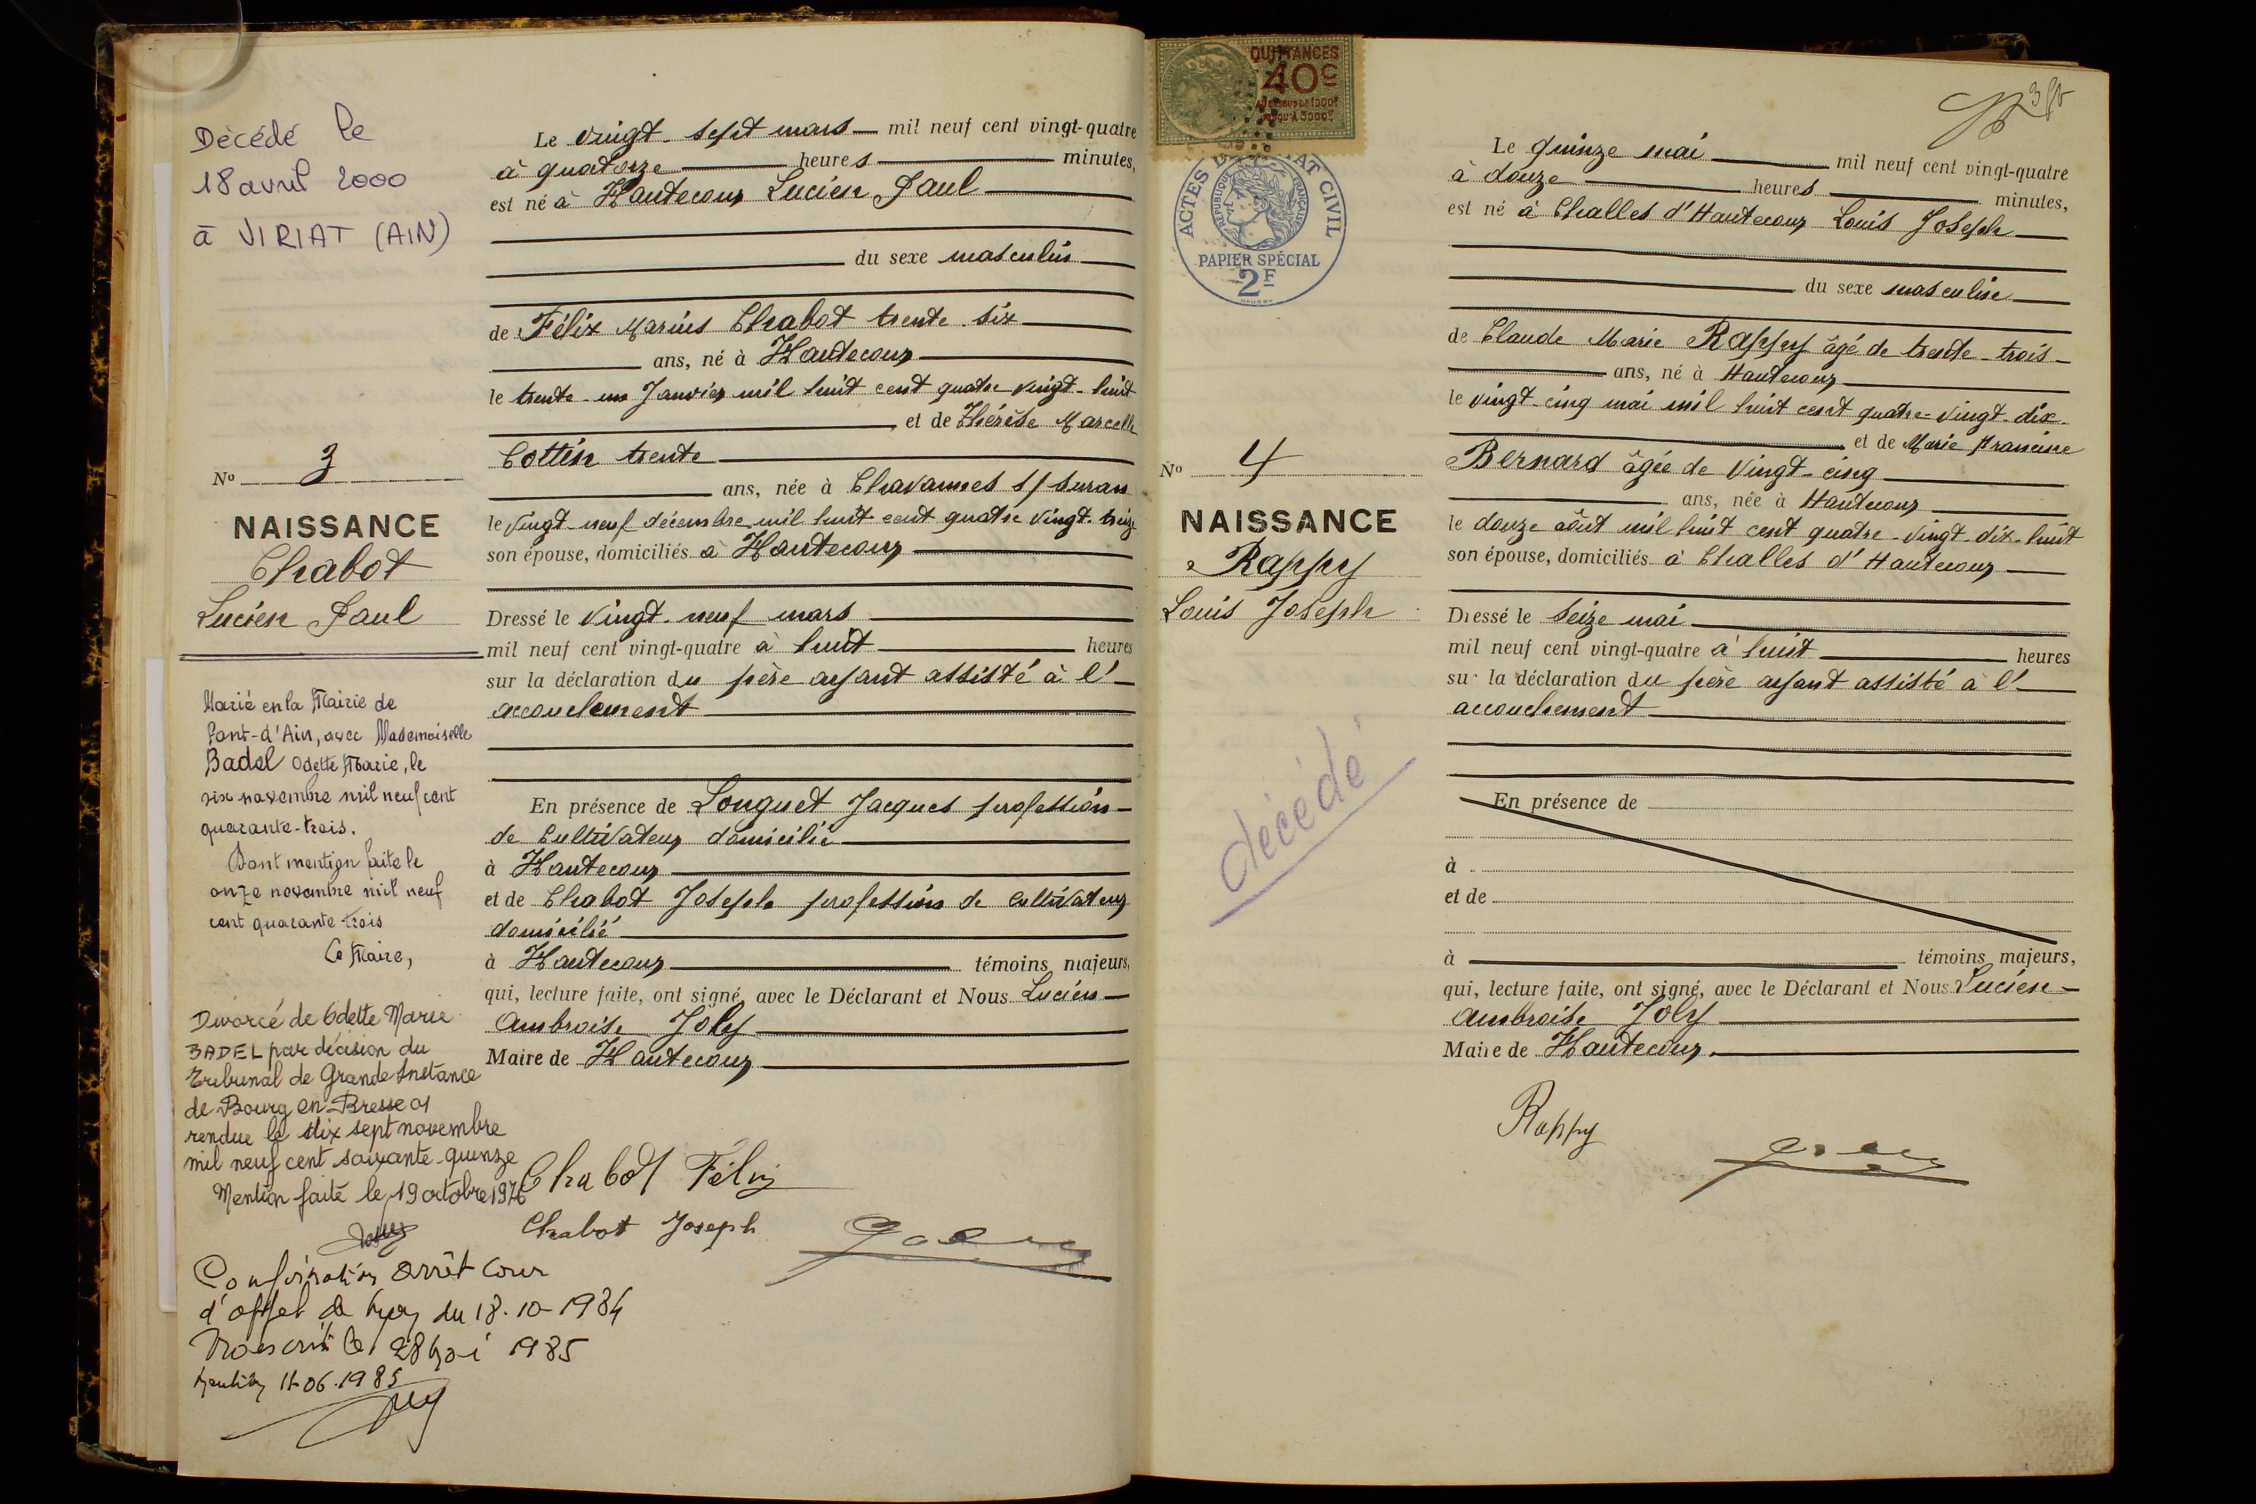 Décédé le
18 avril 2000
à VIRIAT (AIN)
No 3
NAISSANCE
Chabot
Lucien Paul
Marié en la Mairie de
Pont-d'Ain, avec Mademoiselle
Badel Odette Marie, le
six novembre mil neuf cent
quarante-trois.
Dont mention faite le
onze novembre mil neuf
cent quarante-trois
Le Maire,
Divorcé de Odette Marie
BADEL par décision du
Tribunal de Grande Instance
de Bourg en Bresse 01
rendue le dix sept novembre
mil neuf cent soixante-quinze
Mention faite le 19 octobre 1976
arrêt Cour
d'appel de Lyon du 18-10-1984
Transcrit le 28 Mai 1985
Mention 11-06-1985
Le vingt-sept mars mil neuf cent vingt-quatre
à quatorze heures minutes,
est né à Hautecour Lucien Paul
du sexe masculin
de Félix Marius Chabot trente-six
ans, né à Hautecour
le trente-un Janvier mil huit cent quatre-vingt-huit
et de Thérèse Marcelle
Cottin trente
ans, née à Chavannes s/ suran
le vingt-neuf décembre mil huit cent quatre vingt-treize
son épouse, domiciliés à Hautecour
Dressé le vingt-neuf mars
mil neuf cent vingt-quatre à huit heures
sur la déclaration du père ayant assisté à l'
accouchement
En présence de Longuet Jacques profession
de Cultivateur domicilié
à Hautecour
et de Chabot Joseph profession de cultivateur
domicilié
à Hautecour témoins majeurs,
qui, lecture faite, ont signé avec le Déclarant et Nous Lucien
Ambroise Joly
Maire de Hautecour
Chabot Félix
Chabot Joseph
QUITTANCES
40c
ACTES DE L'ÉTAT CIVIL
RÉPUBLIQUE FRANÇAISE
PAPIER SPÉCIAL
2F
No 4
NAISSANCE
Rappy
Louis Joseph
décédé
Le quinze mai mil neuf cent vingt-quatre
à douze heures minutes,
est né à Challes d'Hautecour Louis Joseph
du sexe masculin
de Claude Marie Rappy âgé de trente-trois
ans, né à Hautecour
le vingt-cinq mai mil huit cent quatre-vingt-dix
et de Marie Francine
Bernard âgée de vingt-cinq
ans, née à Hautecour
le douze août mil huit cent quatre-vingt-dix-huit
son épouse, domiciliés à Challes d'Hautecour
Dressé le seize mai
mil neuf cent vingt-quatre à huit heures
sur la déclaration du père ayant assisté à l'
accouchement
En présence de
à
et de
à témoins majeurs,
qui, lecture faite, ont signé, avec le Déclarant et Nous Lucien
Ambroise Joly
Maire de Hautecour
Rappy